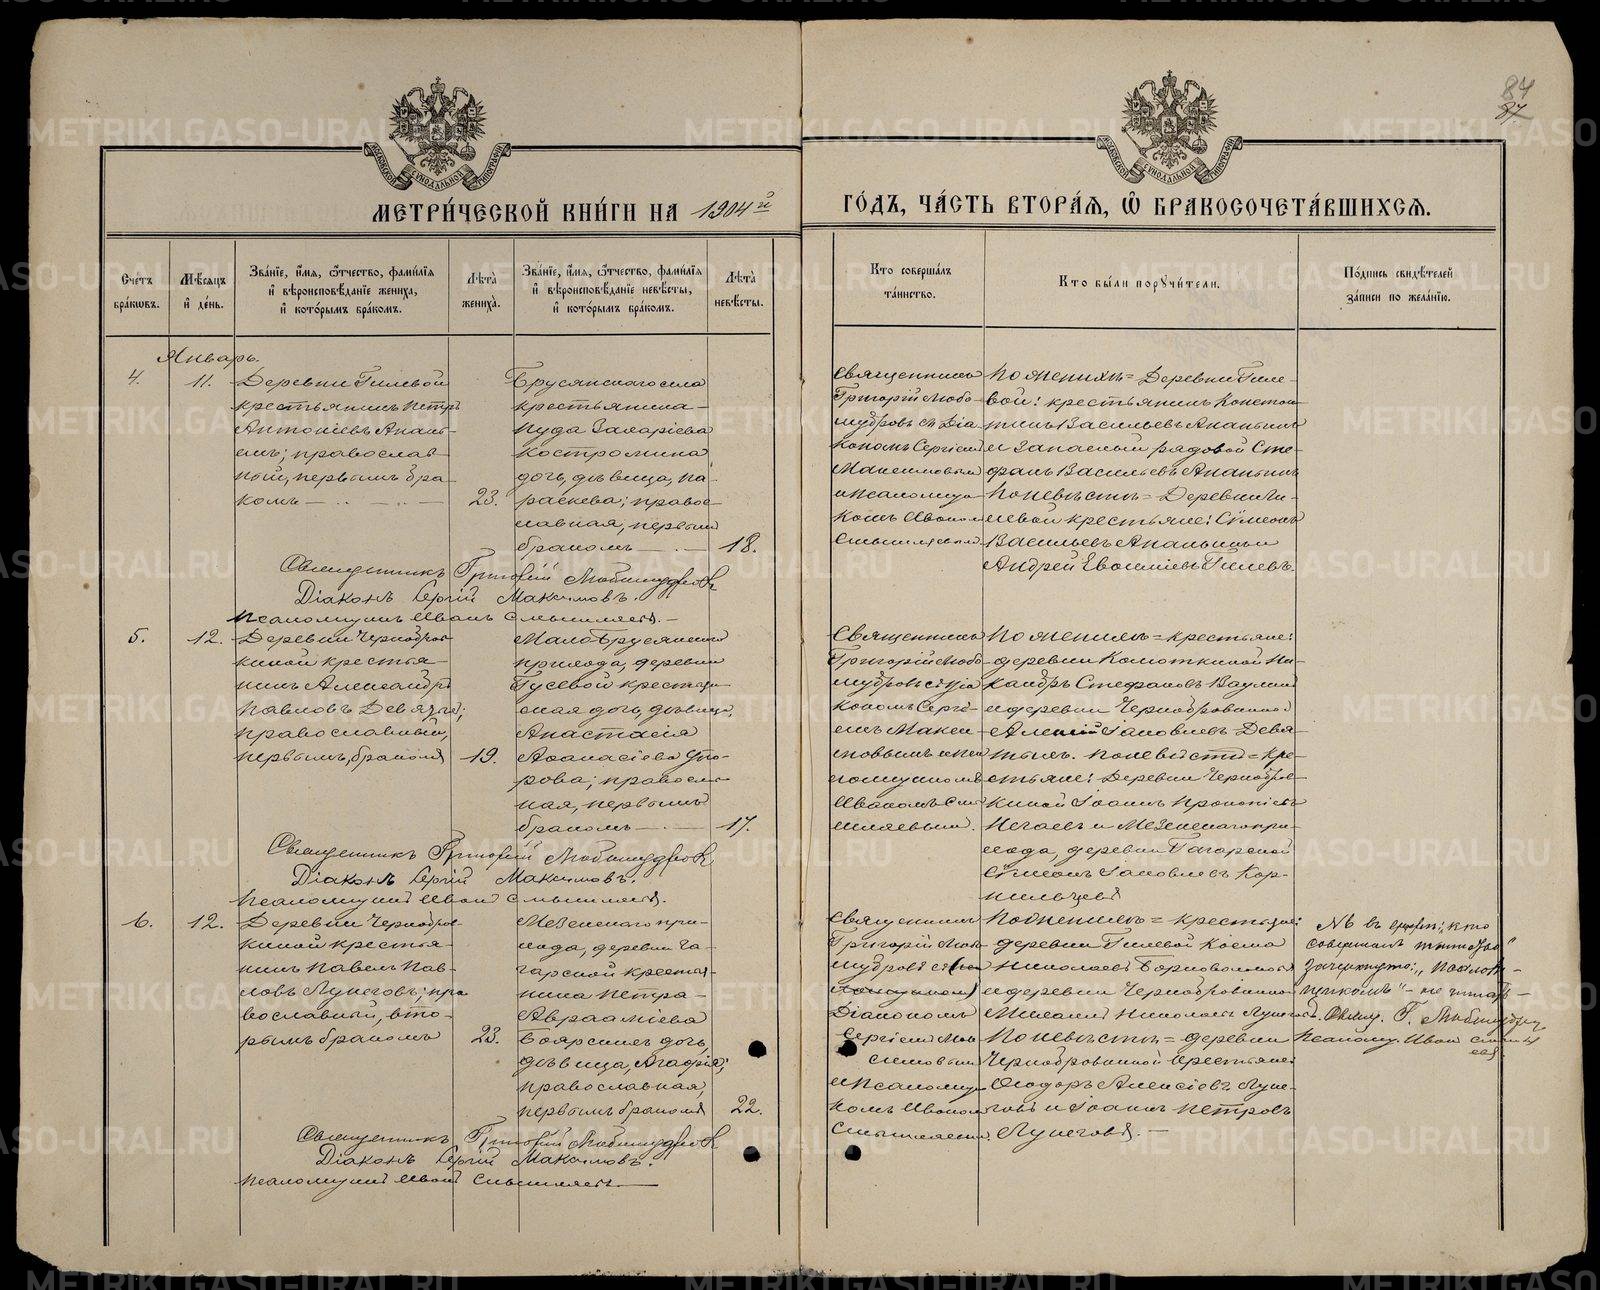 84
87
МЕТРИ́ЧЕСКОЙ КНИ́ГИ НА 1904й
ГО́ДЪ, ЧА́СТЬ ВТОРА́Я, Ѡ БРАКОСОЧЕТА́ВШИХСЯ.
Сче́тъ бра́ковъ.
Мѣ́сяцъ и́ де́нь.
Зва́нїе, и́мя, ѻ́тчество, фами́лїя
и́ вѣроисповѣ́данїе жениха̀,
и́ кото́рымъ бра́комъ.
Лѣ́та жениха̀.
Зва́нїе, и́мя, ѻ́тчество, фами́лїя
и́ вѣроисповѣ́данїе невѣ́сты,
и́ кото́рымъ бра́комъ.
Лѣ́та невѣ́сты.
Кто̀ соверша́лъ
та́инство.
Кто̀ бы́ли порꙋчи́тели.
По́дпись свидѣ́телей
за́писи по жела́нїю.
Январь.
4. 11.
Деревни Гилевой
крестьянинъ Петръ
Антонiевъ Анань-
инъ; православ-
ный, первымъ бра-
комъ
23.
Брусянскаго села
крестьянина
Iуда Захарiева
Костромина
дочь, дѣвица, Па-
раскева; правос-
лавная, первымъ
бракомъ
18.
Священникъ
Григорiй Любо-
мудровъ съ Дiа-
кономъ Сергiемъ
Максимовымъ
и псаломщи-
комъ Иваномъ
Смышляевымъ
По женихѣ = Деревни Гиле-
вой: крестьянинъ Констан-
тинъ Васильевъ Ананьинъ
и запасный рядовой Сте-
фанъ Васильевъ Ананьинъ
По невѣстѣ = Деревни Ги-
левой крестьяне: Сѵмеонъ
Васильевъ Ананьинъ и
Андрей Евѳимiевъ Гилевъ.
Священникъ Григорiй Любомудровъ
Дiаконъ Сергiй Максимовъ.
Псаломщикъ Иванъ Смышляевъ.
5. 12.
Деревни Чернобров-
киной крестья-
нинъ Александръ
Павловъ Девятые;
православный,
первымъ бракомъ
19.
Малобрусянскаго
прихода, деревни
Гусевой крестьян-
ская дочь, дѣвица,
Анастасiя
Аѳанасiева Упо-
рова; правосла-
ная, первымъ
бракомъ
17.
Священникъ
Григорiй Любо-
мудровъ съ Дiа-
кономъ Сергi-
емъ Макси-
мовымъ и пса-
ломщикомъ
Иваномъ Смы-
шляевымъ.
По женихѣ = крестьяне:
деревни Колоткиной Ни-
кандръ Стефановъ Ваулинъ
и деревни Чернобровкиной
Алексiй Iаковлевъ Девя-
тыхъ. По невѣстѣ = кре-
стьяне: Деревни Чернобров-
киной Iоаннъ Прокопiевъ
Нечаевъ и Мезенскаго при-
хода, деревни Гагарской
Сѵмеонъ Iаковлевъ Кор-
мильцевъ
Священникъ Григорiй Любомудровъ
Дiаконъ Сергiй Максимовъ.
Псаломщикъ Иванъ Смышляевъ.
6. 12.
Деревни Чернобров-
киной крестья-
нинъ Павелъ Пав-
ловъ Лунеговъ; пра-
вославный, вто-
рымъ бракомъ
23.
Мезенскаго при-
хода, деревни Га-
гарской крестья-
нина Петра
Авраамiева
Боярскихъ дочь,
дѣвица, Агафiя;
православная,
первымъ бракомъ
22.
Священникъ
Григорiй Любо-
мудровъ съ
Дiакономъ
Сергiемъ Мак-
симовымъ
и псаломщи-
комъ Иваномъ
Смышляевымъ.
По женихѣ = крестьяне:
деревни Гилевой Косма
Николаевъ Боярскихъ
и деревни Чернобровкиной
Михаилъ Николаевъ Лунеговъ.
По невѣстѣ = деревни
Чернобровкиной крестьяне:
Ѳеодоръ Алексiевъ Луне-
говъ и Iоаннъ Петровъ
Лунеговъ.
NB въ графѣ: „кто
совершалъ таинство"
зачеркнуто: „псалом-
щикомъ" - не читать.
Свящ. Г. Любомудровъ
Псаломщ. Иванъ Смышляевъ
Священникъ Григорiй Любомудровъ
Дiаконъ Сергiй Максимовъ.
Псаломщикъ Иванъ Смышляевъ
METRIKI.GASO-URAL.RU